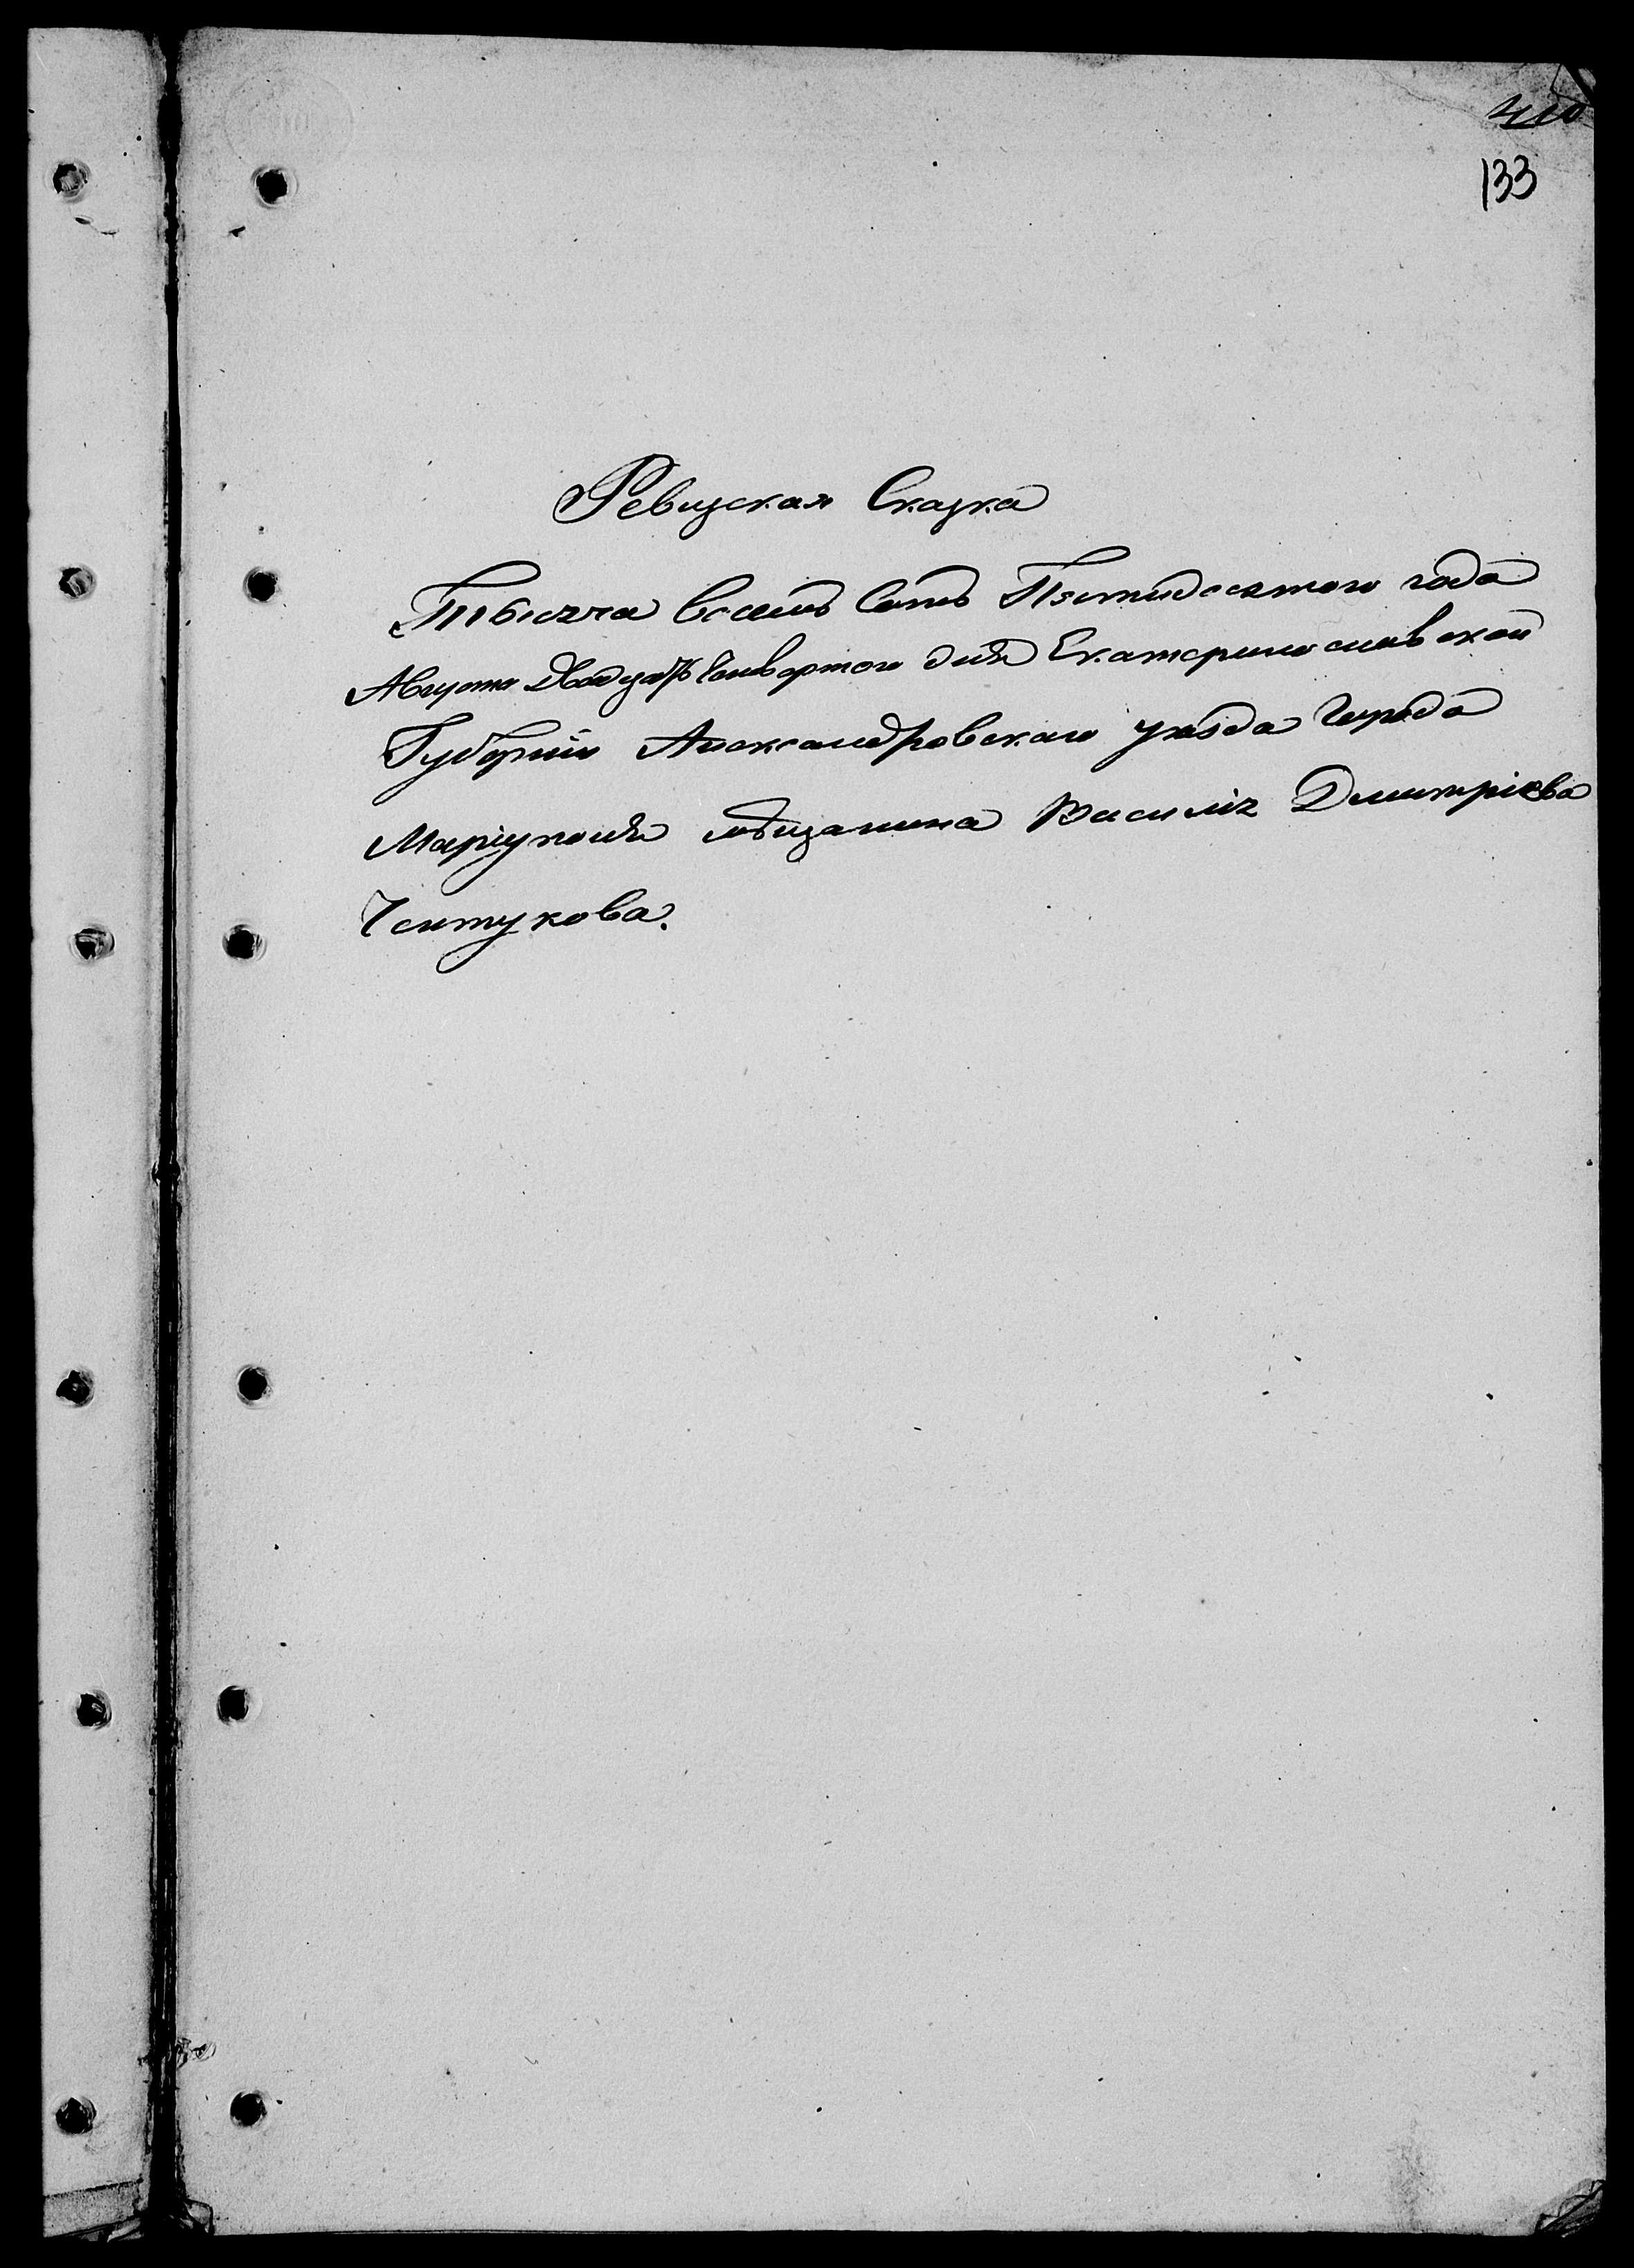 133
Ревизская Сказка
Тысяча восемь сотъ Пятидесятого года
Августа Двадцать Четвертого дня Екатеринославской
Губернiи Александровскаго уѣзда Города
Марiуполя мѣщанина Василiя Дмитрiева
Челтукова.